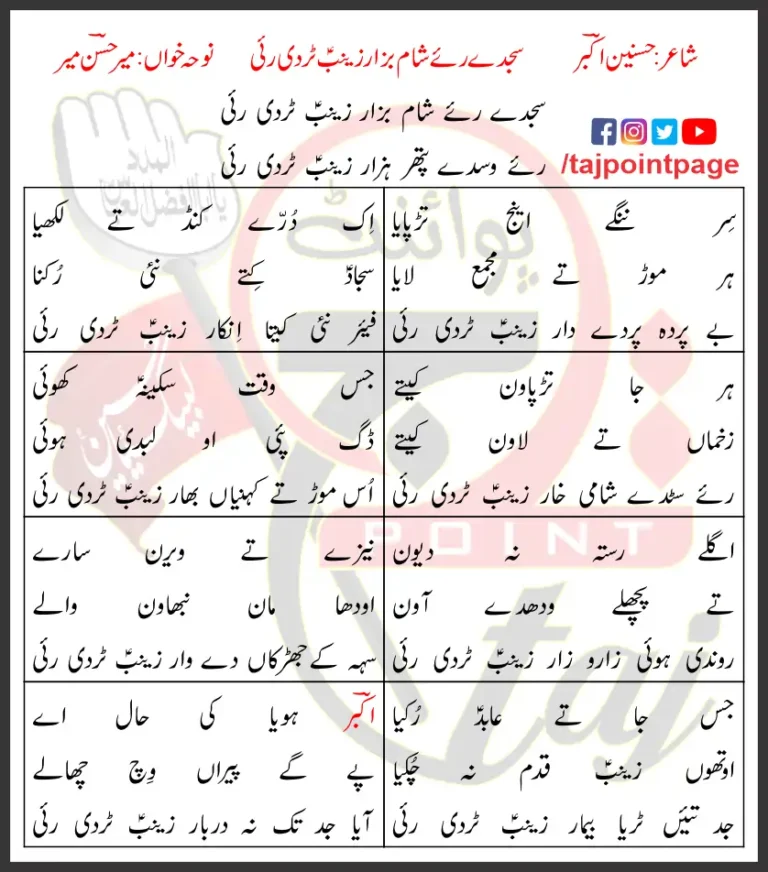 شاعر: حسنین اکبرؔ سجدے رئے شام بزار زینبؑ ٹردی رئی نوحہ خواں: میر حسن میرؔ
سجدے رئے شام بزار زینبؑ ٹردی رئی
رئے وسدے پتھر ہزار زینبؑ ٹردی رئی
/tajpointpage
سِر ننگے اینج تڑپایا
ہر موڑ تے مجمع لایا
بے پردہ پردے دار زینبؑ ٹردی رئی
اِک دُرّے کنڈ تے لکھیا
سجادؑ کِتے نئی رُکنا
فیئر نئی کیتا اِنکار زینبؑ ٹردی رئی
ہر جا تڑپاون کیتے
زخماں تے لاون کیتے
رئے سٹدے شامی خار زینبؑ ٹردی رئی
جس وقت سکینہؑ کھوئی
ڈگ پئی او لبدی ہوئی
اُس موڑ تے کہنیاں بھار زینبؑ ٹردی رئی
اگلے رستہ نہ دیون
تے پچھلے ودھدے آون
روندی ہوئی زارو زار زینبؑ ٹردی رئی
نیزے تے ویرن سارے
اودھا مان نبھاون والے
سہہ کے جھڑکاں دے وار زینبؑ ٹردی رئی
جس جا تے عابدؑ رُکیا
اوتھوں زینبؑ قدم نہ چُکیا
جد تئیں ٹریا بیمار زینبؑ ٹردی رئی
اکبرؔ ہویا کی حال اے
پے گے پیراں وِچ چھالے
آیا جد تک نہ دربار زینبؑ ٹردی رئی
المدد
یا ابالفضل العباس
لبیک یا حسین
پوائنٹ
تاج
POINT
taj